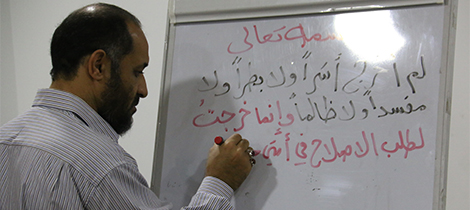 بسمه تعالى
لم اخرج أشراً ولا بطراً ولا
مفسداً ولا ظالماً وإنما خرجتُ
لطلب الاصلاح في أمتي